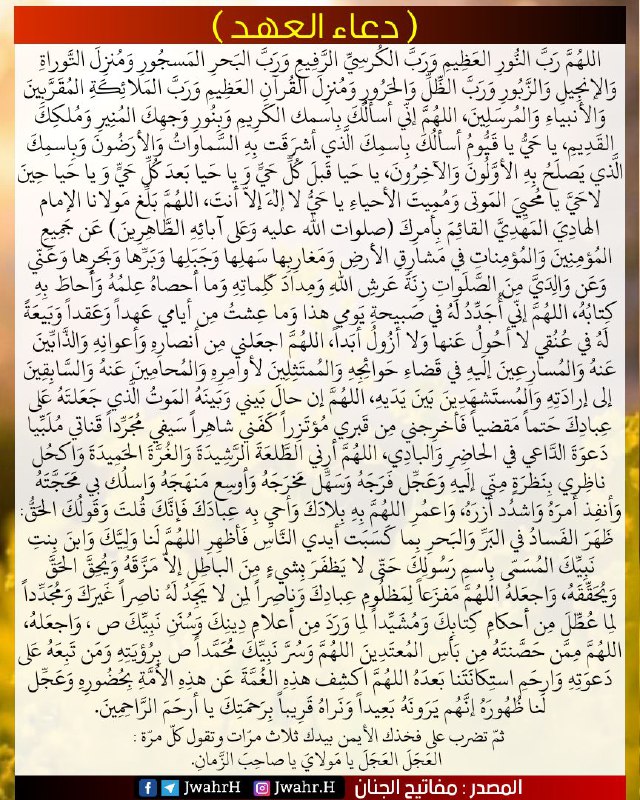 ( دعاء العهد )
اللهُمَّ رَبَّ النُّورِ العَظِيمِ وَرَبَّ الكُرسيِّ الرَّفِيعِ وَرَبَّ البَحرِ المَسجُورِ وَمُنزِلَ التَّوراةِ
وَالإنجِيلِ وَالزَّبُورِ وَرَبَّ الظِّلِّ وَالحَرُورِ وَمُنزِلَ القُرآنِ العَظِيمِ وَرَبَّ المَلائِكَةِ المُقَرَّبِينَ
وَالأنبِياءِ وَالمُرسَلِينَ، اللهُمَّ إنِّي أسألُكَ بِاسمِك الكَرِيمِ وَبِنُورِ وَجهِكَ المُنِيرِ وَمُلكِكَ
القَدِيمِ، يا حَيُّ يا قَيُّومُ أسألُكَ بِاسمِكَ الَّذي أشرَقَت بِهِ السَّماواتُ وَالأرضُونَ وَبِاسمِكَ
الَّذي يَصلَحُ بِهِ الأوَّلُونَ وَالآخِرُونَ، يا حَيا قَبلَ كُلِّ حَيٍّ وَ يا حَيا بَعدَ كُلِّ حَيٍّ وَ يا حَيا حِينَ
لاحَيَّ يا مُحيِيَ المَوتى وَمُمِيتَ الأحياءِ يا حَيُّ لا إلهَ إلاّ أنتَ، اللهُمَّ بَلِّغ مَولانا الإمام
الهادِيَ المَهدِيَّ القائِمَ بِأمرِكَ (صلوات الله عليه وَعَلى آبائِهِ الطَّاهِرِينَ) عَن جَمِيعِ
المُؤمِنِينَ وَالمُؤمِناتِ في مَشارِقِ الأرضِ وَمَغارِبِها سَهلِها وَجَبَلِها وَبَرِّها وَبَحرِها وَعَنّي
وَعَن وَالِدَيَّ مِنَ الصَّلَواتِ زِنَةَ عَرشِ اللهِ وَمِدادَ كَلِماتِهِ وَما أحصاهُ عِلمُهُ وَأحاطَ بِهِ
كِتابُهُ، اللهُمَّ إنِّي أُجَدِّدُ لَهُ في صَبِيحَةِ يَومِي هذا وَما عِشتُ مِن أيامي عَهداً وَعَقداً وَبَيعَةً
لَهُ في عُنُقِي لا أحُولُ عَنها وَلا أزُولُ أبَداً، اللهُمَّ اجعَلنِي مِن أنصارِهِ وَأعوانِهِ وَالذَّابّينَ
عَنهُ وَالمُسارِعِينَ إلَيهِ في قَضاءِ حَوائِجِهِ وَالمُمتَثِلِينَ لأوامِرِهِ وَالمُحامِينَ عَنهُ وَالسَّابِقِينَ
إلى إرادَتِهِ وَالمُستَشهَدِينَ بَينَ يَدَيهِ، اللهُمَّ إن حالَ بَيني وَبَينَهُ المَوتُ الَّذي جَعَلتَهُ عَلى
عِبادِكَ حَتماً مَقضِياً فَأخرِجني مِن قَبرِي مُؤتَزِراً كَفَني شاهِراً سَيفي مُجَرِّداً قَناتي مُلَبِّيا
دَعوَةَ الدَّاعي في الحاضِرِ وَالبادِي، اللهُمَّ أرِنِي الطَّلعَةَ الرَّشِيدَةَ وَالغُرَّةَ الحَمِيدَةَ وَاكحُل
ناظِرِي بِنَظرَةٍ مِنِّي إلَيهِ وَعَجِّل فَرَجَهُ وَسَهِّل مَخرَجَهُ وَأوسِع مَنهَجَهُ وَاسلُك بي مَحَجَّتَهُ
وَأنفِذ أمرَهُ وَاشدُد أزرَهُ، وَاعمُرِ اللهُمَّ بِهِ بِلادَكَ وَأحيِ بِهِ عِبادَكَ فَإنَّكَ قُلتَ وَقَولُكَ الحَقُّ:
ظَهَرَ الفَسادُ في البَرِّ وَالبَحرِ بِما كَسَبَت أيدي النَّاسِ فَأظهِرِ اللهُمَّ لَنا وَلِيَّكَ وَابنَ بِنتِ
نَبِيِّكَ المُسَمّى بِاسمِ رَسُولِكَ حَتّى لا يَظفَرَ بِشيءٍ مِنَ الباطِلِ إلاّ مَزَّقَهُ وَيُحِقَّ الحَقَّ
وَيُحَقِّقَهُ، وَاجعَلهُ اللهُمَّ مَفزَعاً لِمَظلُومِ عِبادِكَ وَناصِراً لِمن لا يَجِدُ لَهُ ناصِراً غَيرَكَ وَمُجَدِّداً
لِما عُطِّلَ مِن أحكامِ كِتابِكَ وَمُشَيِّداً لِما وَرَدَ مِن أعلامِ دِينِكَ وَسُنَنِ نَبِيِّكَ ص ، وَاجعَلهُ،
اللهُمَّ مِمَّن حَصَّنتَهُ مِن بَأسِ المُعتَدِينَ اللهُمَّ وَسُرَّ نَبِيَّكَ مُحَمَّداً ص بِرُؤيَتِهِ وَمَن تَبِعَهُ عَلى
دَعوَتِهِ وَارحَمِ استِكانَتَنا بَعدَهُ اللهُمَّ اكشِف هذِهِ الغُمَّةَ عَن هذِهِ الأُمَّةِ بِحُضُورِهِ وَعَجِّل
لَنا ظُهُورَهُ إنَّهُم يَرَونَهُ بَعِيداً وَنَراهُ قَرِيباً بِرَحمَتِكَ يا أرحَمَ الرَّاحِمِينَ.
ثمّ تضرب على فخذك الأيمن بيدك ثلاث مرّات وتقول كلّ مرة :
العَجَلَ العَجَلَ يا مَولايَ يا صاحِبَ الزَّمانِ.
المصدر : مفاتيح الجنان Jwahr.H JwahrH